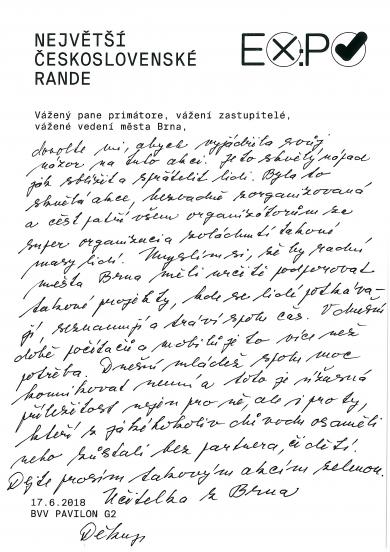 NEJVĚTŠÍ
ČESKOSLOVENSKÉ
RANDE
EXPO
Vážený pane primátore, vážení zastupitelé,
vážené vedení města Brna,
dovolte mi, abych vyjádřila svůj
názor na tuto akci. Je to skvělý nápad
jak sblížit a spřátelit lidi. Bylo to
skvělá akce, bezvadně zorganizovaná
a čest patří všem organizátorům za
super organizaci zvládnutí takové
masy lidí. Myslím si, že by radní
města Brna měli určitě podporovat
takové projekty, kde se lidé potkáva-
jí, seznamují a tráví spolu čas. V dnešní
době počítačů a mobilů je to více než
potřeba. Dnešní mládež spolu moc
komunikovat neumí a toto je úžasná
příležitost nejen pro ně, ale i pro ty,
kteří z jakéhokoliv důvodu osaměli
nebo zůstali bez partnera, či dětí.
Dejte prosím takovým akcím zelenou.
Učitelka z Brna
17.6.2018
BVV PAVILON G2
Děkuji